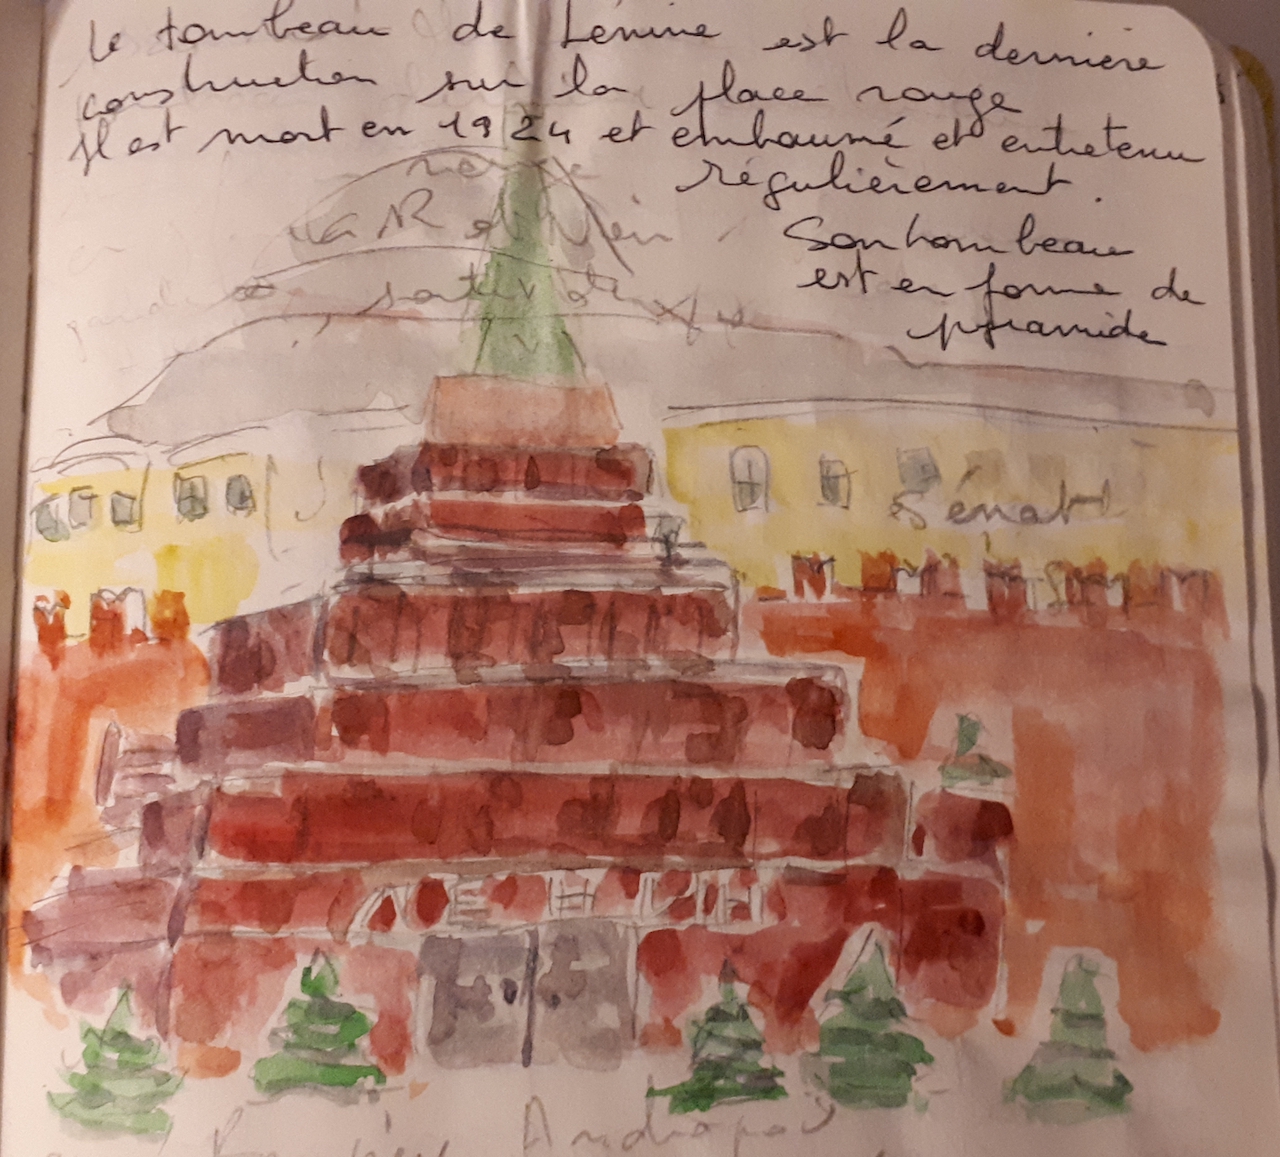 Le tombeau de Lénine est la dernière
construction sur la place rouge
Il est mort en 1924 et embaumé et entretenu
régulièrement.
Son tombeau
est en forme de
pyramide
Sénat
ЛЕНИН